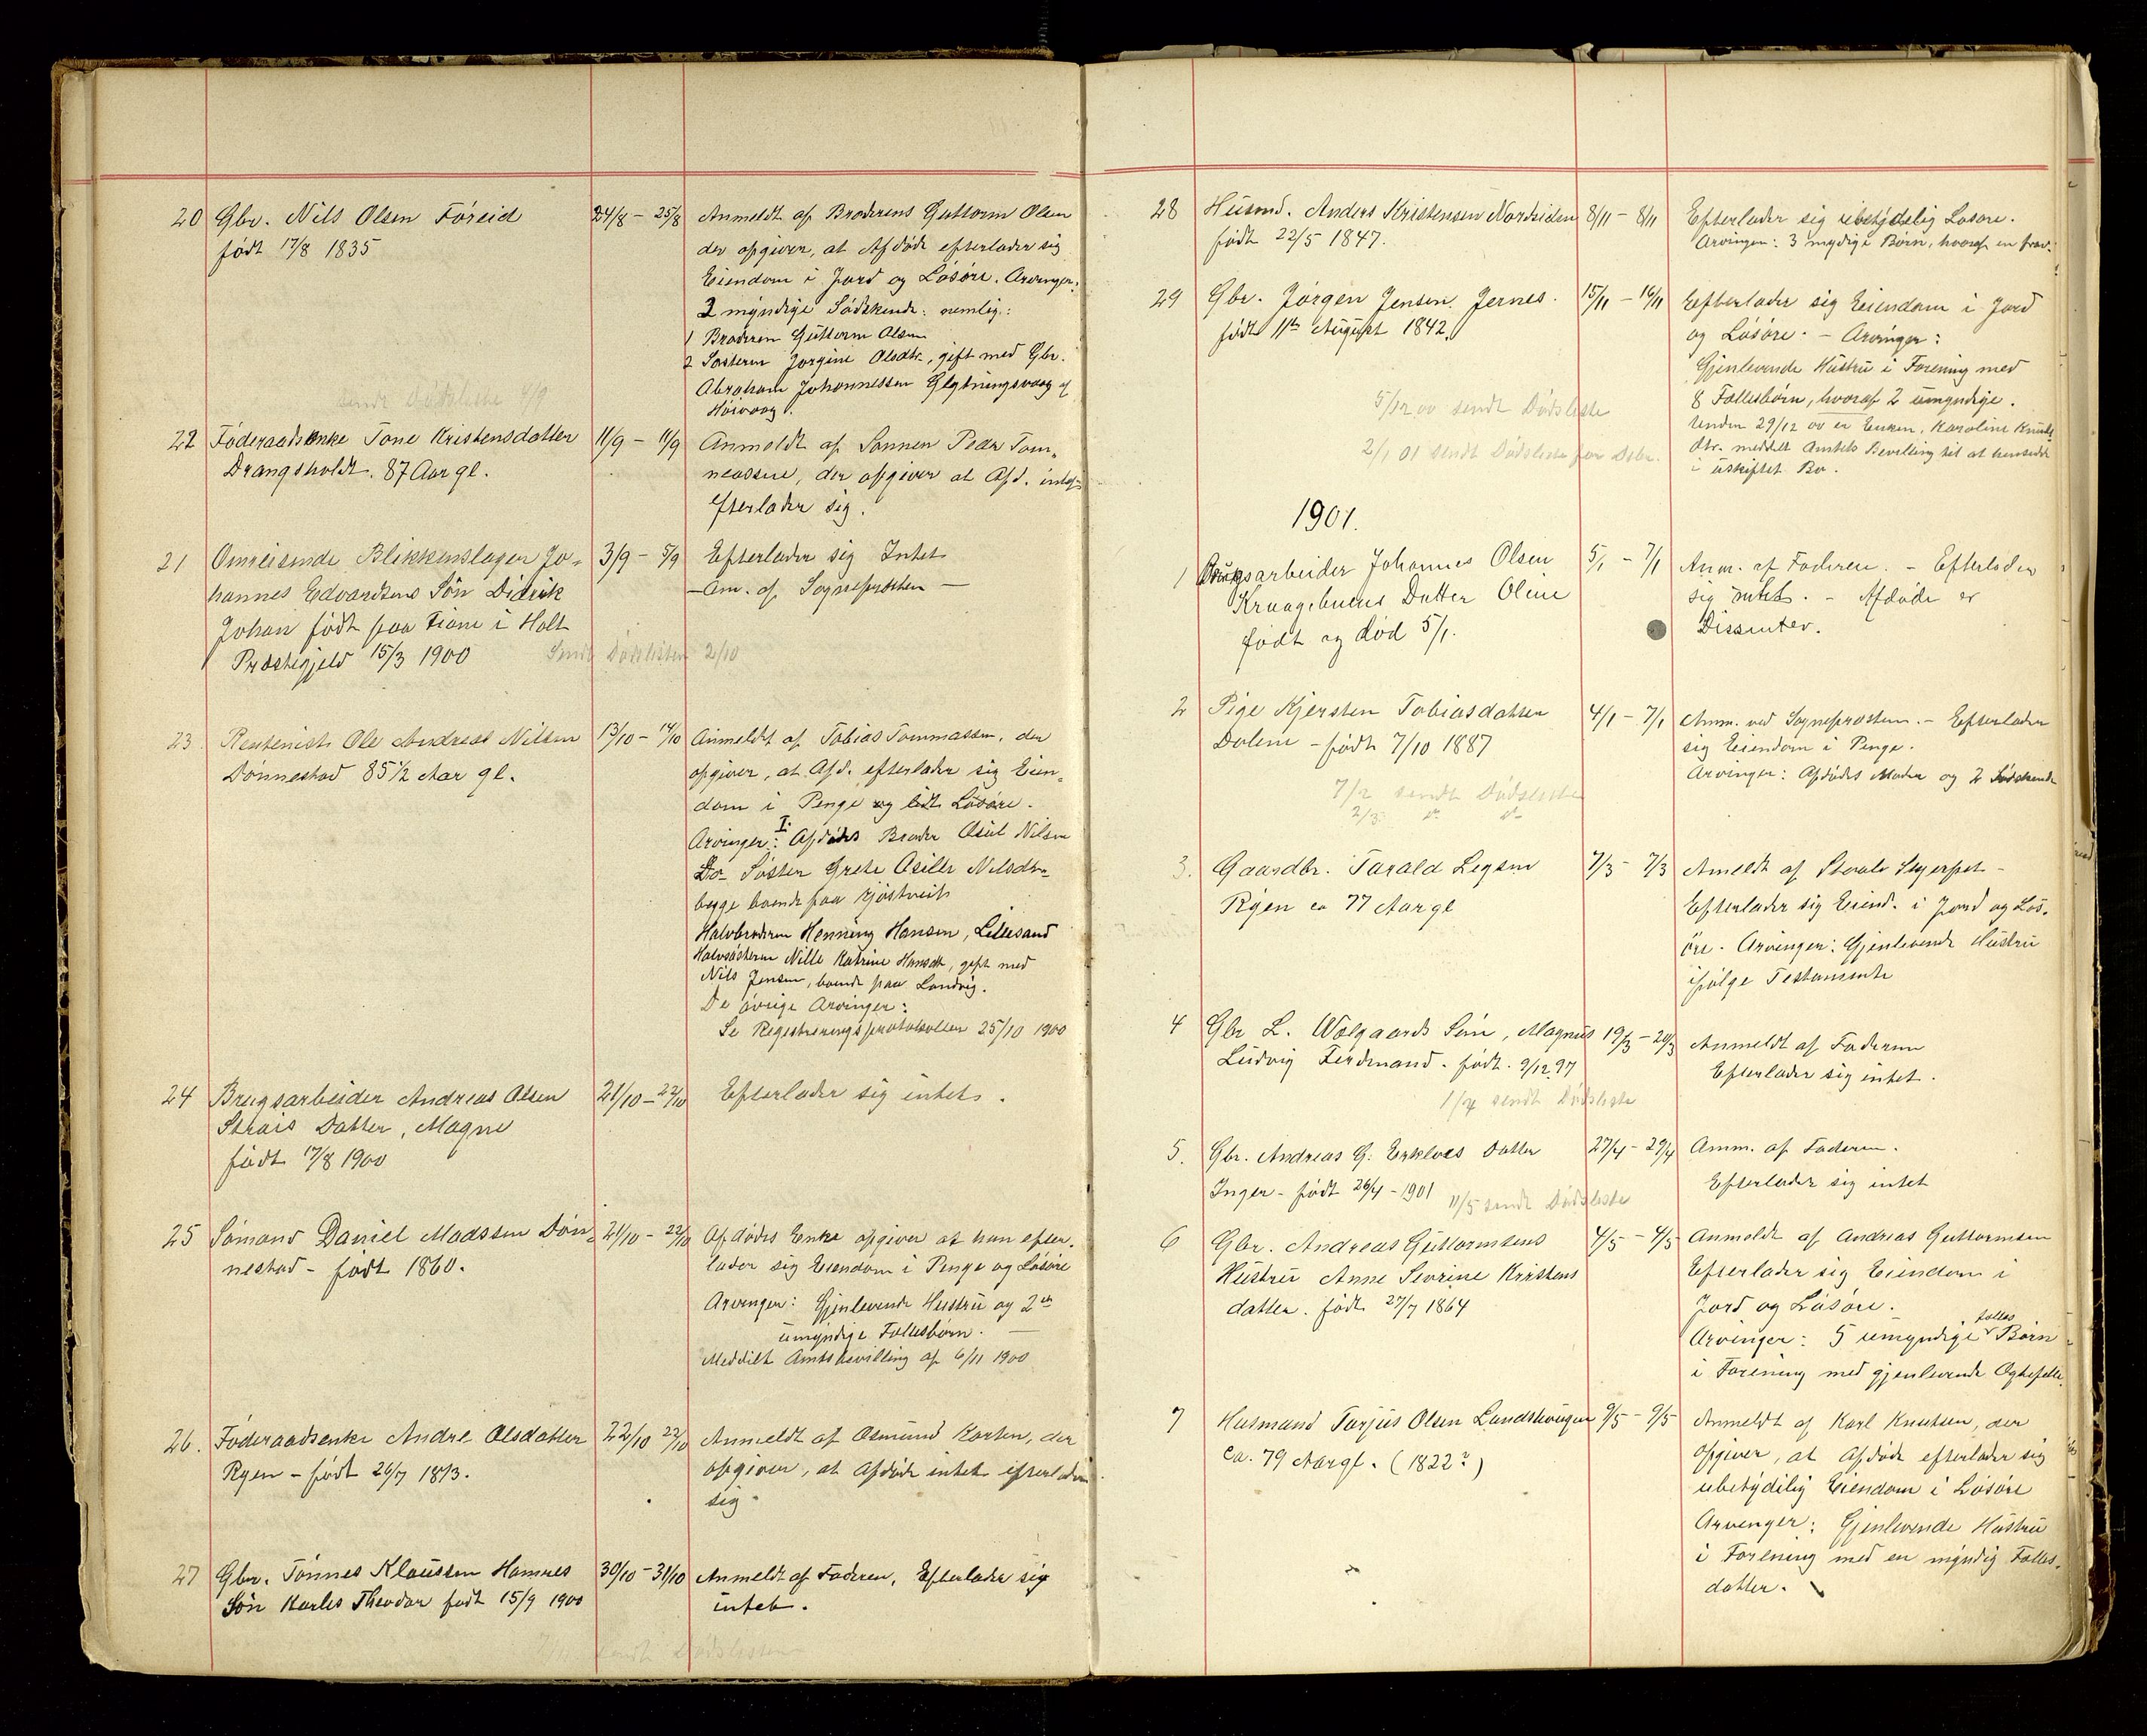 20 Gbr. Nils Olsen Föreid 24/8 - 25/8 Anmeldt af Broderens Guttorm Olsen
født 17/8 1835 der opgiver, at Afdøde efterlader sig
Eiendom i Jord og Løsøre. Arvinger:
2 myndige Sødskende: nemlig:
1 Broderen Guttorm Olsen
2 Søsteren Jørgine Olsdtr., gift med Gbr.
Abraham Johannessen
Høivaag.
sendt Dødsliste 4/9
22 Føderaadsenke Tone Kristensdatter 11/9 - 11/9 Anmeldt af Sønnen Peder Tom-
Drangsholdt. 87 Aar gl. neassen, der opgiver at Afd. intet
efterlader sig.
21 Omreisende Blikkenslager Jo- 3/9 - 5/9 Efterlader sig Intet
hannes Edvardsens Søn Didrik - Am. af Sogneprosten -
Johan født paa Fiane i Holt
Præstegjeld 15/3 1900 Sendt Dødslisten 2/10
23. Rentenist Ole Andreas Nilsen 13/10 - 14/10 Anmeldt af Tobias Tommassen, der
Dønnestad 85 1/2 Aar gl. opgiver, at Afd. efterlader sig Eien-
dom i Penge og lidt Løsøre.
Arvinger: I. Afdødes Broder Osul Nilsen
Do- Søster Grete Osille Nilsdtr-
begge boende paa
Halvbroderen Henning Hansen, Lillesand
Halvsøsteren Nille Katrine Hansdtr, gift med
Nils Jensen, boende paa Landvig.
De øvrige Arvinger:
Se Registreringsprotokollen 25/10 1900
24 Brugsarbeider Andreas Olsen 21/10 - 22/10 Efterlader sig intet.
Strais Datter, Magne
født 17/8 1900
25 Sømand Daniel Madssen Døn- 21/10 - 22/10 Afdødes Enke opgiver at han efter-
nestad - født 1860. lader sig Eiendom i Penge og Løsøre
Arvinger: Gjenlevende Hustru og 2
umyndige Fællesbørn. -
Meddelt Amtsbevilling af 6/11 1900
26. Føderaadsenke Andre Olsdatter 22/10 22/10 Anmeldt af Osmund Korten, der
Ryen - født 26/7 1813. opgiver, at Afdøde intet efterlader
sig.
27 Gbr. Tønnes Klaussen Hamres 30/10 - 31/10 Anmeldt af Faderen, Efterlader sig
Søn Karles Theodor født 15/9 1900 intet.
7/11 sendt Dødslisten
28 Husmd. Anders Kristensen Nordsiden 8/11 - 8/11 Efterlader sig ubetydelig Løsøre.
født 22/5 1847. Arvinger: 3 myndige Børn, hvoraf en frav.
29 Gbr. Jørgen Jensen Jernes. 15/11 - 16/11 Efterlader sig Eiendom i Jord
født 11te August 1842. og Løsøre. - Arvinger:
Gjenlevende Hustru i Forening med
8 Fællesbørn, hvoraf 2 umyndige.
5/12 00 sendt Dødsliste
Under 29/12 00 er Enken, Karoline Knuds-
2/1 01 sendt Dødsliste for Debr. dtr. meddelt Amtets Bevilling til at hensidde
i uskiftet Bo.
1901.
1 Brugsarbeider Johannes Olsen 5/1 - 7/1 Anm. af Faderen. - Efterlader
Kraagebuens Datter Oline sig intet. - Afdøde er
født og død 5/1. Dissenter.
2 Pige Kjersten Tobiasdatter 4/1 - 7/1 Anm. ved Sogneprosten. - Efterlader
Dalene - født 7/10 1887 sig Eiendom i Penge.
Arvinger: Afdødes Moder og 2 Sødskende
7/2 sendt Dødsliste
2/3 do do
3. Gaardbr. Tarald Legsen 7/3 - 7/3 Ameldt af
Ryen ca 77 Aar gl Efterlader sig Eiend. i Jord og Løs-
øre. Arvinger: Gjenlevende Hustru
ifølge Testamente
4 Gbr L. Wolgaards Søn, Magnus 19/3 - 20/3 Anmeldt af Faderen
Ludvig Ferdinand. født. 9/12.97 Efterlader sig intet.
1/4 sendt Dødsliste
5. Gbr. Andreas G. Erklevs Datter 27/4 - 29/4 Anm. af Faderen.
Inger - født 26/4 - 1901 11/5 sendt Dødsliste Efterlader sig intet
6 Gbr. Andreas Guttormsens 4/5 - 4/5 Anmeldt af Andreas Guttormsen
Hustru Anne Severine Kristens Efterlader sig Eiendom i
datter. født 27/7 1864 Jord og Løsøre.
Arvinger: 5 umyndige fælles Børn
i Forening med gjenlevende Ægtefælle.
7 Husmand Tarjus Olsen Landshaugen 9/5 - 9/5 Anmeldt af Karl Knutsen, der
Ca. 79 Aar gl. (1822?) opgiver, at Afdøde efterlader sig
ubetydelig Eiendom i Løsøre
Arvinger: Gjenlevende Hustru
i Forening med en myndig Fælles-
datter.